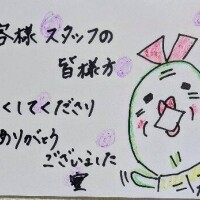 客様 スタッフの
皆様方
くしてくださり
ありがとう
ございました